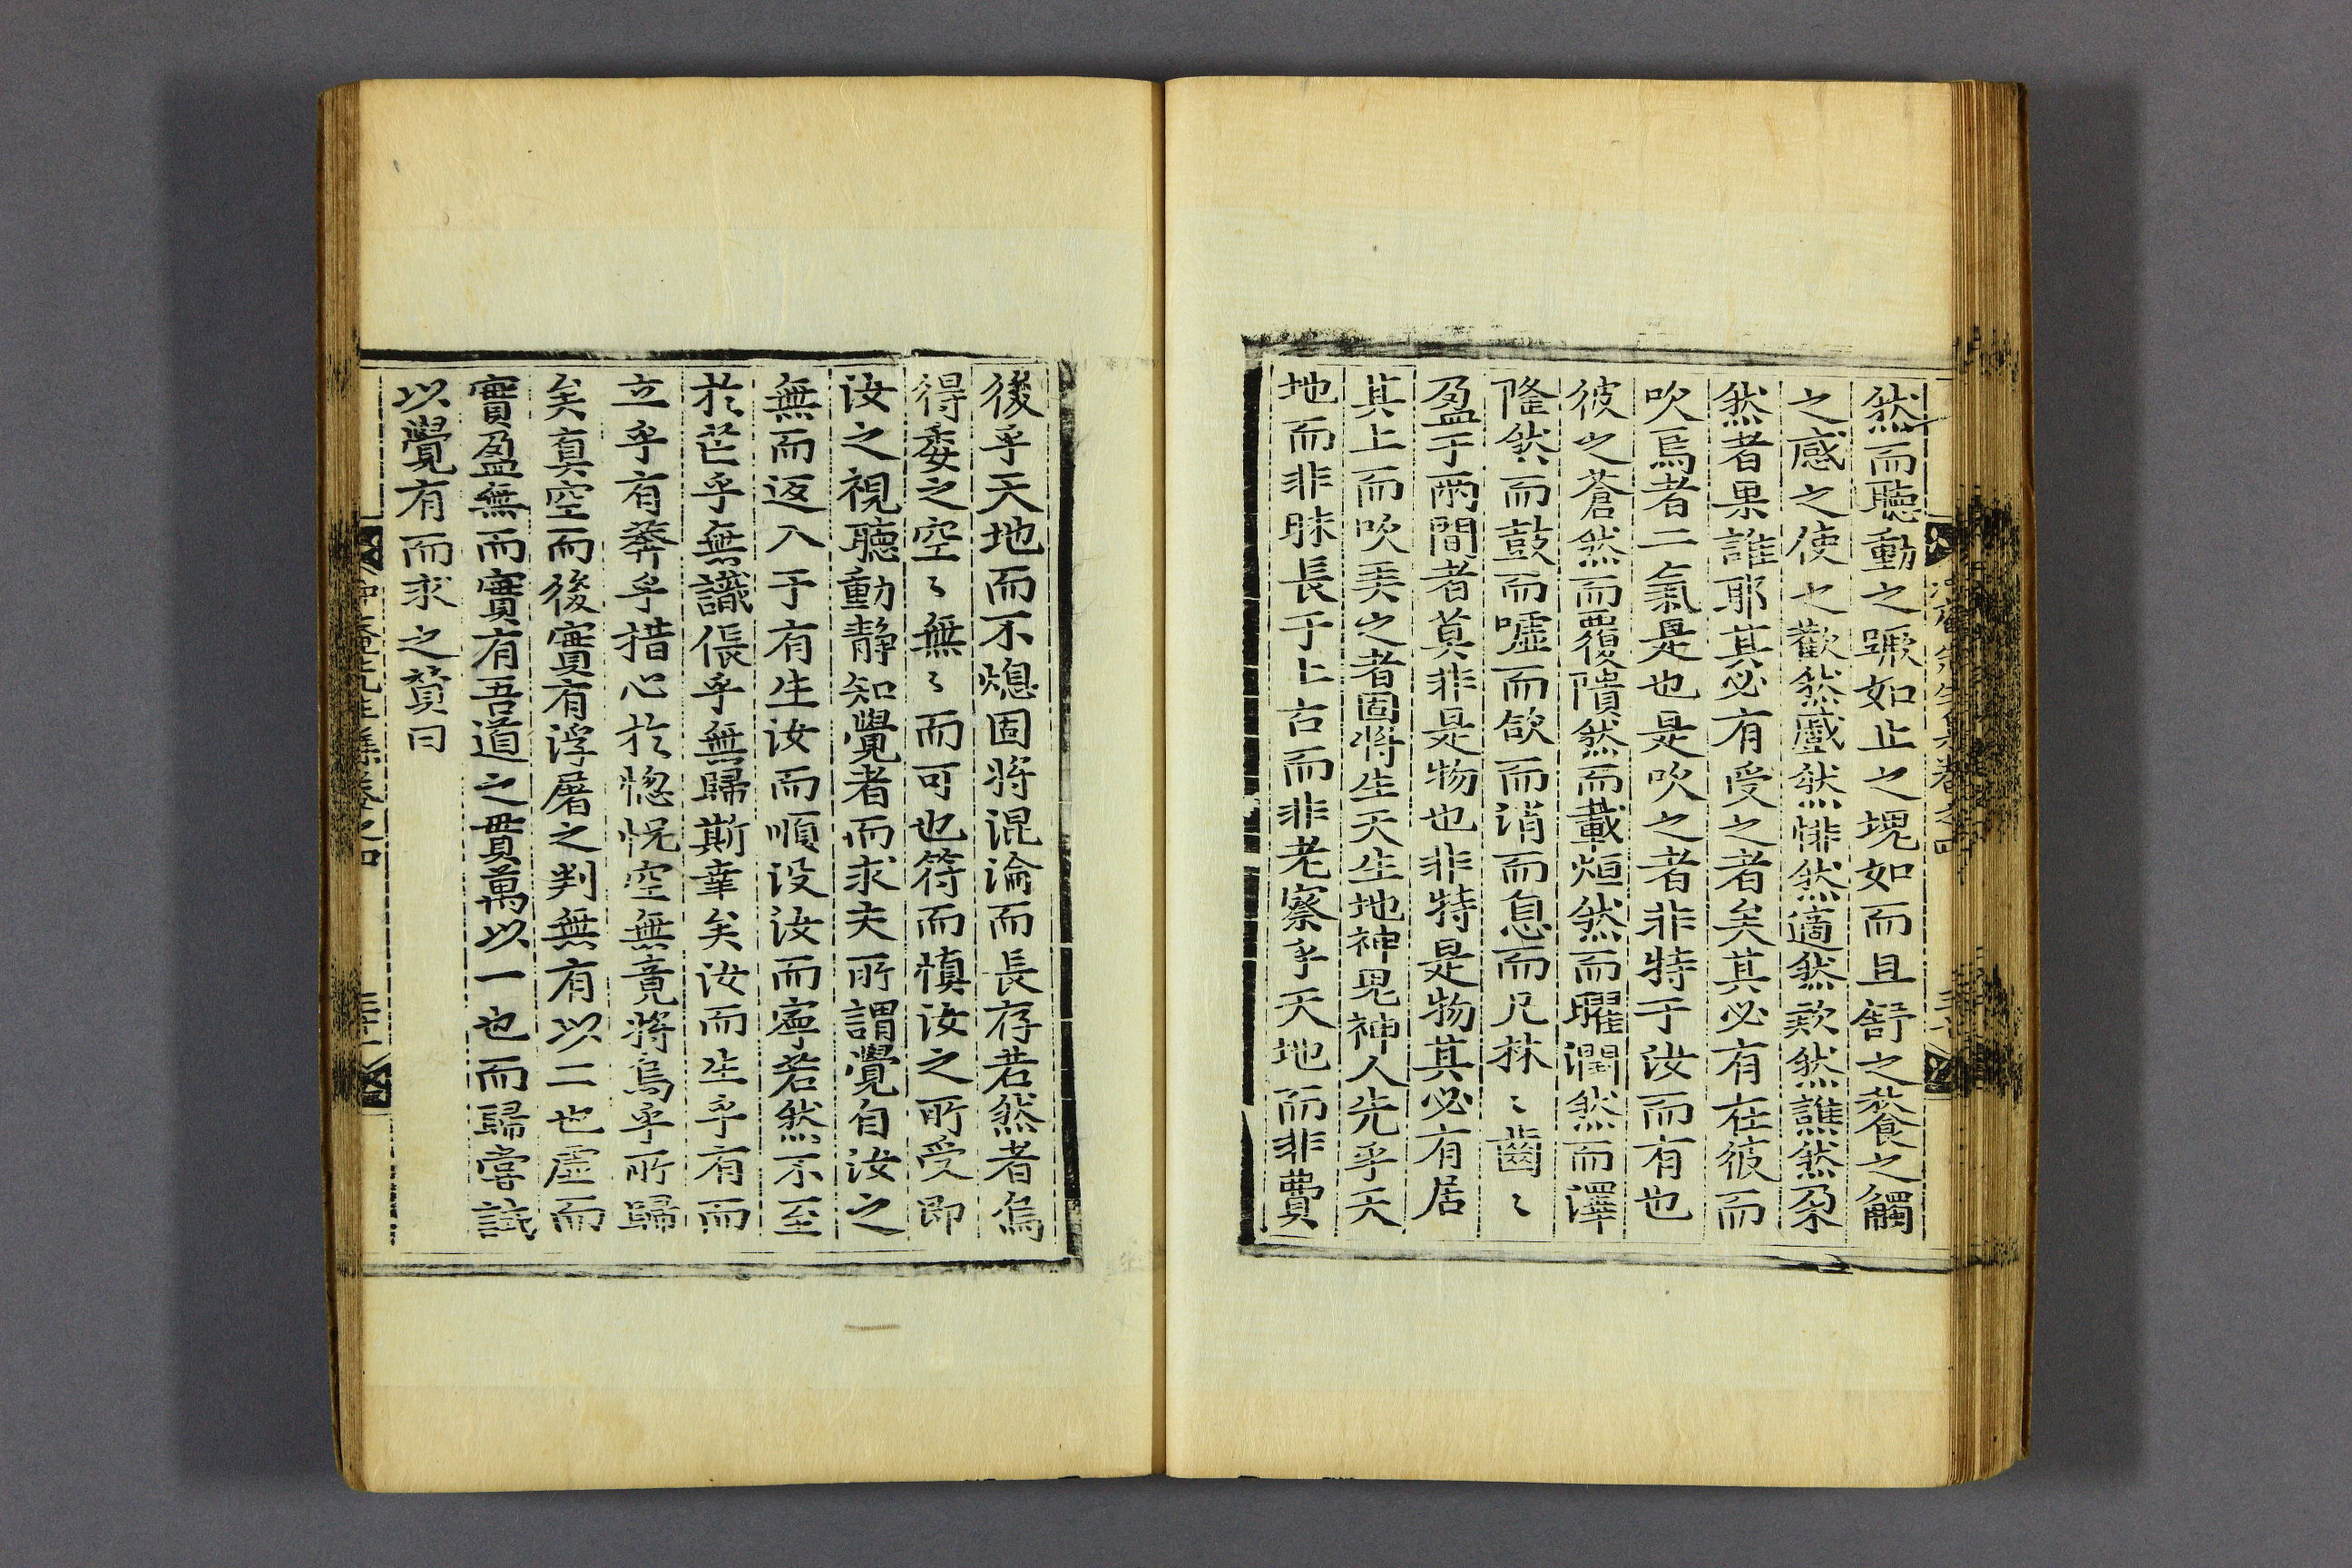 然而聽動之蹶如止之塊如而且舒之養之觸
之感之使之歡然慼然悱然適然欻然譙然朶
然者果誰耶其必有受之者矣其必有在彼而
吹焉者二氣是也是吹之者非特于汝而有也
彼之蒼然而覆隤然而載烜然而曜潤然而澤
隆然而鼓而噓而欱而消而息而凡林〻齒〻
盈于兩間者莫非是物也非特是物其必有居
其上而吹羙之者固將生天生地神鬼神人先乎天
地而非昧長于上古而非老察乎天地而非費
後乎天地而不熄固將混淪而長存若然者烏
得委之空〻無〻而可也符而愼汝之所受即
汝之視聽動靜知覺者而求夫所謂覺自汝之
無而返入于有生汝而順没汝而寧若然不至
於茫乎無識倀乎無歸斯幸矣汝而生乎有而
立乎有莾乎措心於惚恍空無竟將烏乎所歸
矣眞空而後實有浮屠之判無有以二也虛而
實盈無而實有吾道之貫萬以一也而歸嘗試
以覺有而求之贊曰